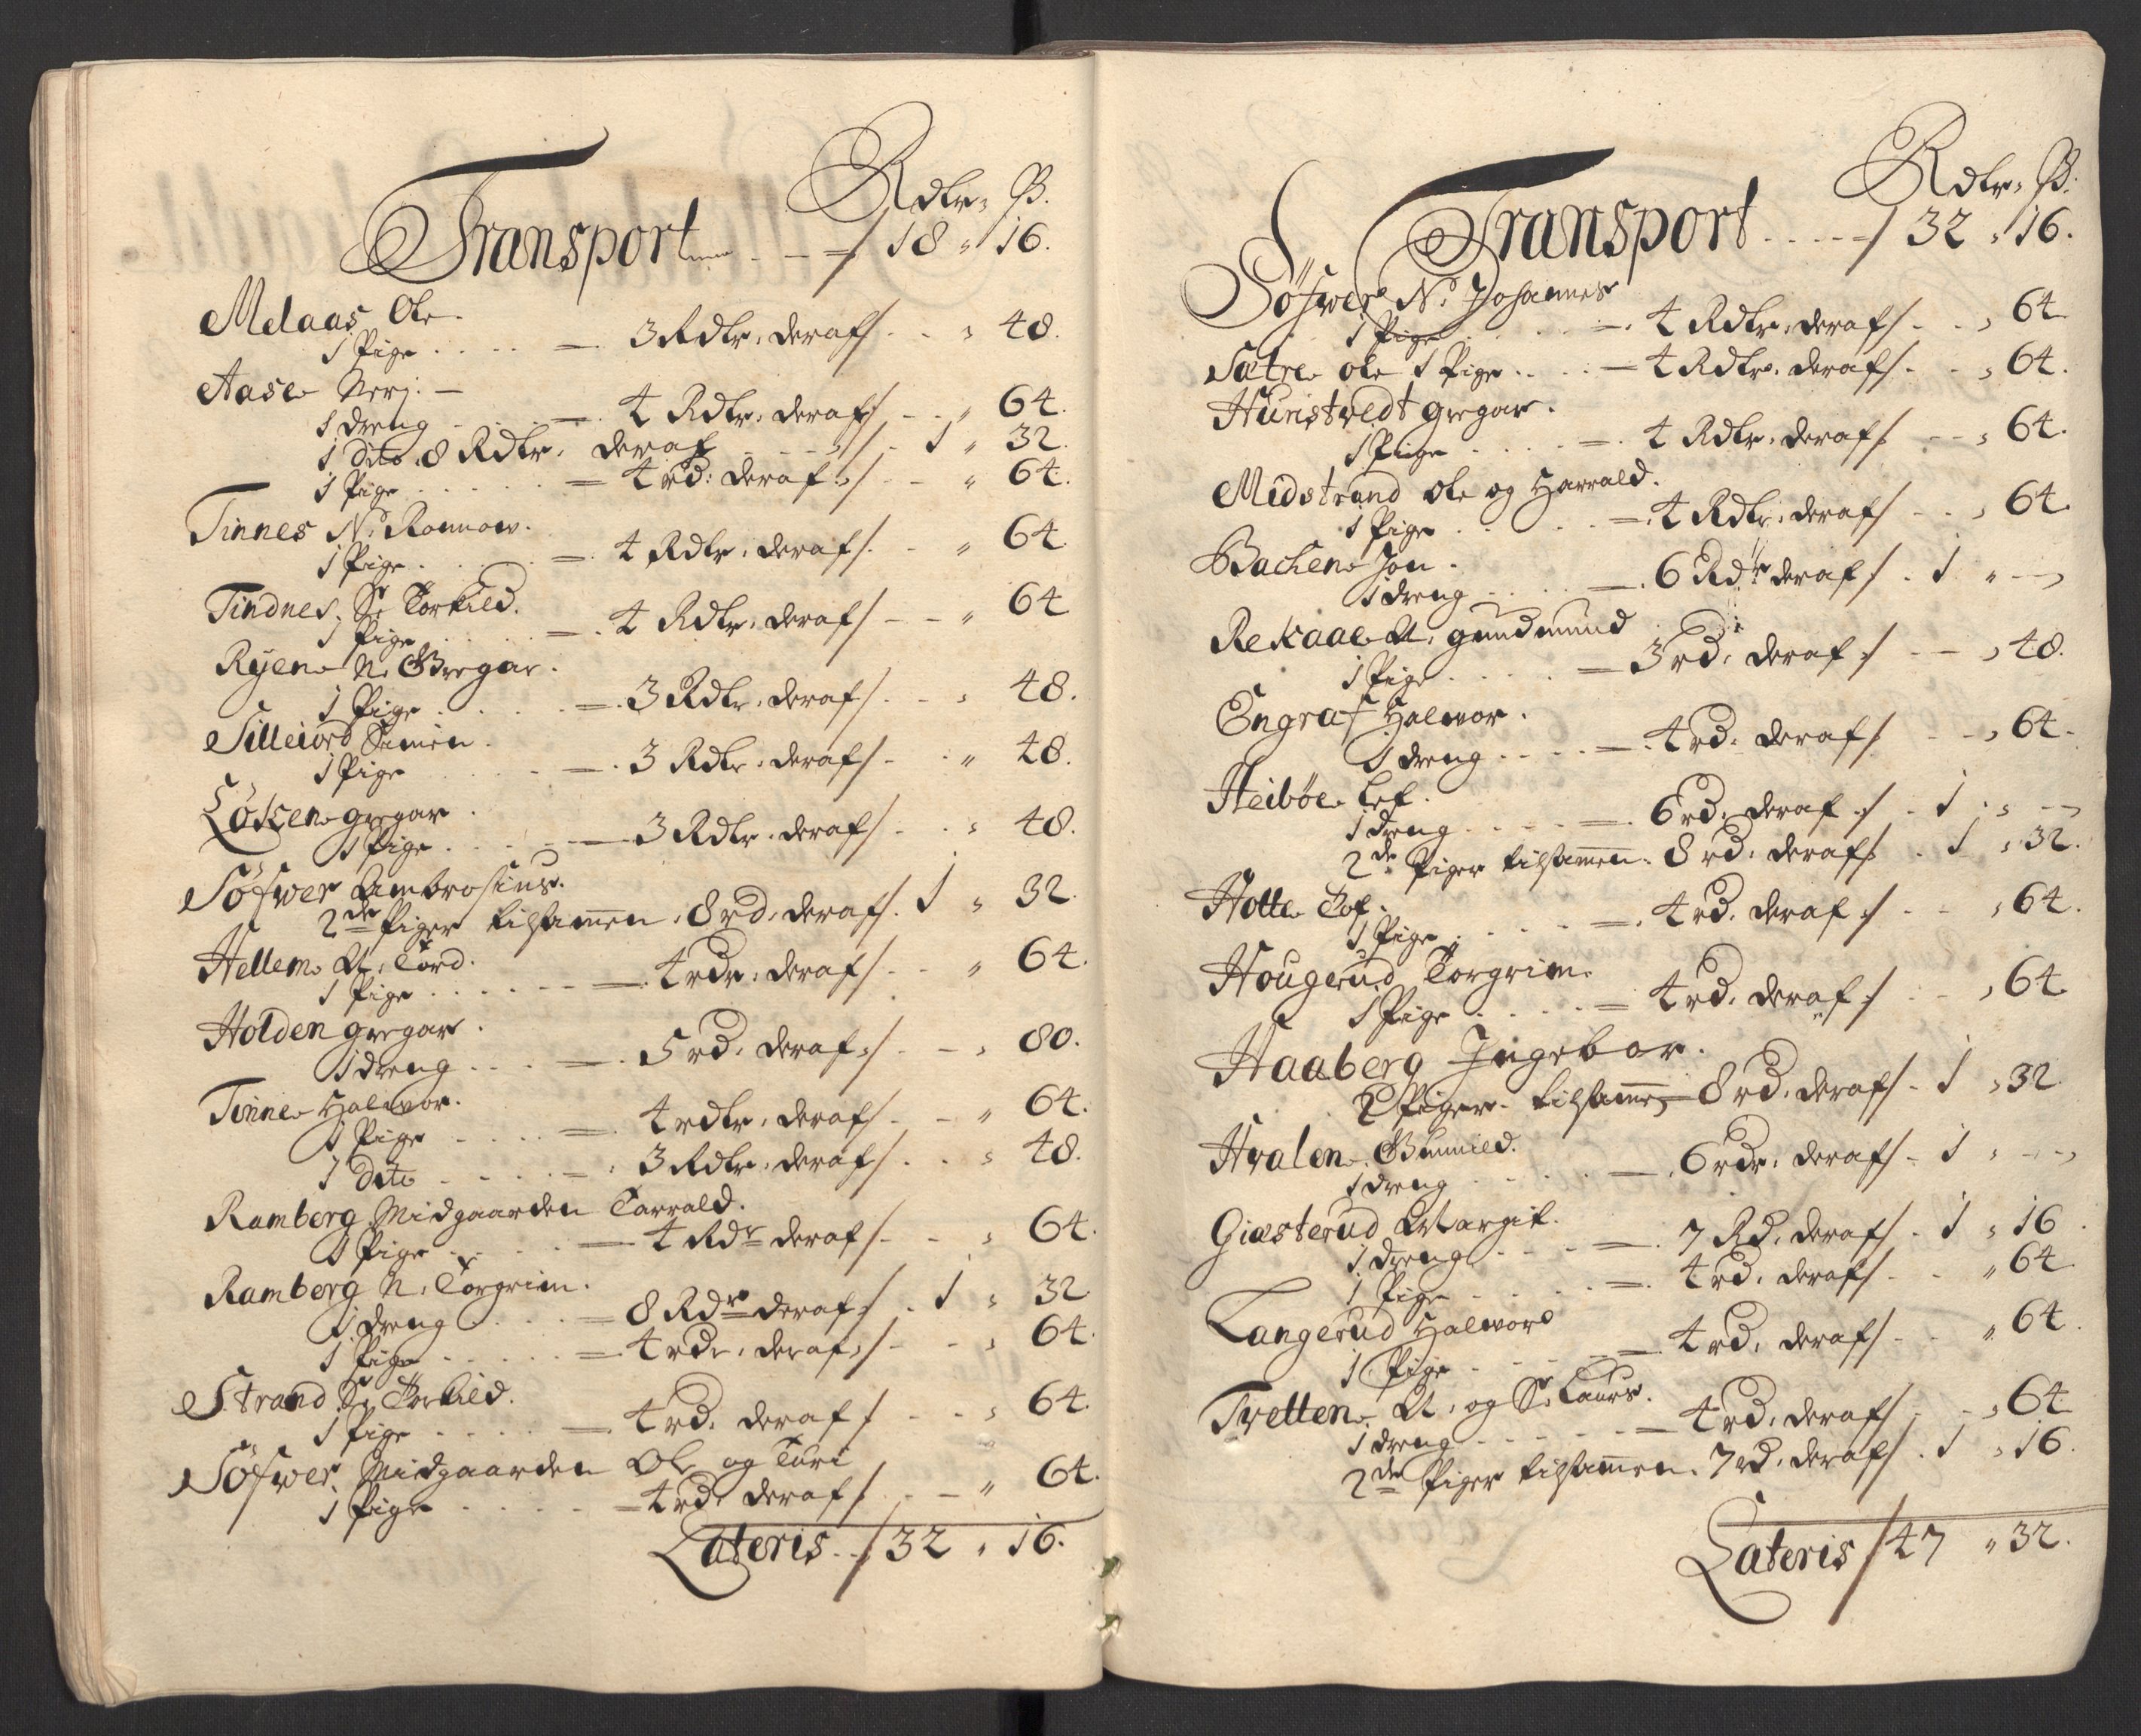 Rdlr, ß.
Transport - - - 18 " 16.
Melaas Ole.
1 Pige . . . . 3 Rdlr, deraf - - , 48.
Aase Nerj. -
1 dreng - - 4 Rdlr, deraf - - " 64.
1 dito 8 Rdlr, deraf - - - 1 " 32.
1 Pige . . . . 4 rd: deraf - - " 64.
Tinnes N: Ronnow.
1 Pige . . . 4 Rdlr, deraf - - " 64.
Tindnes, S: Torkild.
1 Pige . . . 4 Rdlr, deraf - - " 64
Ryen N: Gregar.
1 Pige . . . . 3 Rdlr, deraf - - , 48.
Silleiord Simen.
1 Pige . . . . 3 Rdlr, deraf - - " 48.
Löken gregar.
1 Pige . . . . 3 Rdlr, deraf - - , 48.
Söfwer Ambrosius.
2de Piger tilsamen, 8 rd, deraf . 1 " 32.
Hellem, A: Tord.
1 Pige . . . . . . 4 rdr, deraf - - " 64.
Holden gregar.
1 dreng . . . 5 rd, deraf - - , 80.
Tinne Halwor.
1 Pige . . . . 4 rdlr, deraf - - " 64.
1 Dito . . . . 3 Rdlr, deraf . . , 48.
Ramberg Midgaarden Tarrald.
1 Pige . . . . 4 Rdr deraf - - , 64.
Ramberg N: Torgrim.
1 dreng . . . 8 Rdr deraf . 1 , 32
1 Pige . . . . 4 rdr, deraf - - , 64.
Strand S: Torkild.
1 Pige . . . . 4 rd, deraf - - , 64.
Söfwer, Midgaarden Ole og Turi
1 Pige . . . . 4 rd, deraf - - " 64.
Lateris - 32 " 16.
Rdlr, ß.
Transport - - - 32 , 16.
Söfwer N: Johannes
1 Pige . . . . 4 Rdlr, deraf - - , 64
Sätre ole 1 Pige . . . 4 Rdlr, deraf - - , 64.
Huristvedt gregar.
1 Piige . . . . 4 Rdlr, deraf - - , 64.
Midstrand Ole og Harrald.
1 Pige . . . . 4 Rdlr, deraf - - , 64.
Bachen Jon.
1 dreng . . . . 6 Rdr deraf . 1 " -
Rekaae A: gundmund
1 Pige . . . . 3 rd, deraf - - , 48.
Engraf Halwor.
1 dreng . . . . 4 rd, deraf - - , 64.
Heiböe Lef.
1 dreng . . . . 6 rd, deraf . 1 , -
2de Piger tilsamen, 8 rd, deraf . 1 , 32.
Holte Tof.
1 Pige . . . . 4 rd, deraf - - , 64.
Hougerud Torgrim.
1 Pige . . . . 4 rd, deraf - - , 64.
Haaberg Ingebor.
2 Piger tilsamen 8 rd, deraf - 1 , 32.
Hvalen Gunnild.
1 dreng . . . . 6 rdr, deraf - 1 , -
Giæsterud Margit.
1 dreng - - - 7 Rd, deraf . 1 " 16.
1 Pige . . . . 4 rd, deraf - - " 64.
Langerud Halword
1 Pige . . . . 4 rd, deraf - - " 64.
Tvetten, A: og S: Laurs.
1 dreng . . . . 4 rd, deraf - - , 64
2de Piger tilsamen, 7 rd, deraf . 1 , 16.
Lateris 47 " 32.